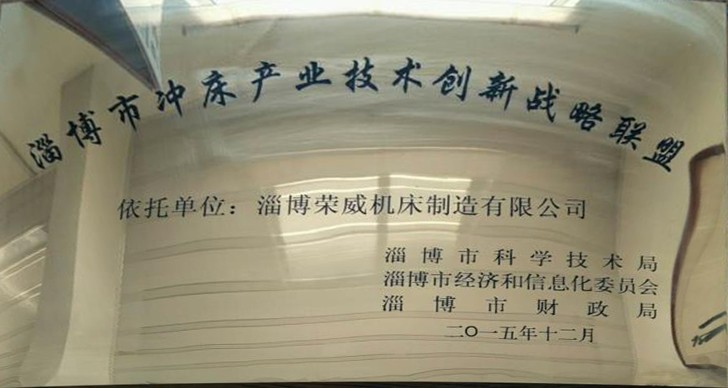 淄博市冲床产业技术创新战略联盟
依托单位：淄博荣威机床制造有限公司
淄博市科学技术局
淄博市经济和信息化委员会
淄博市财政局
二〇一五年十二月